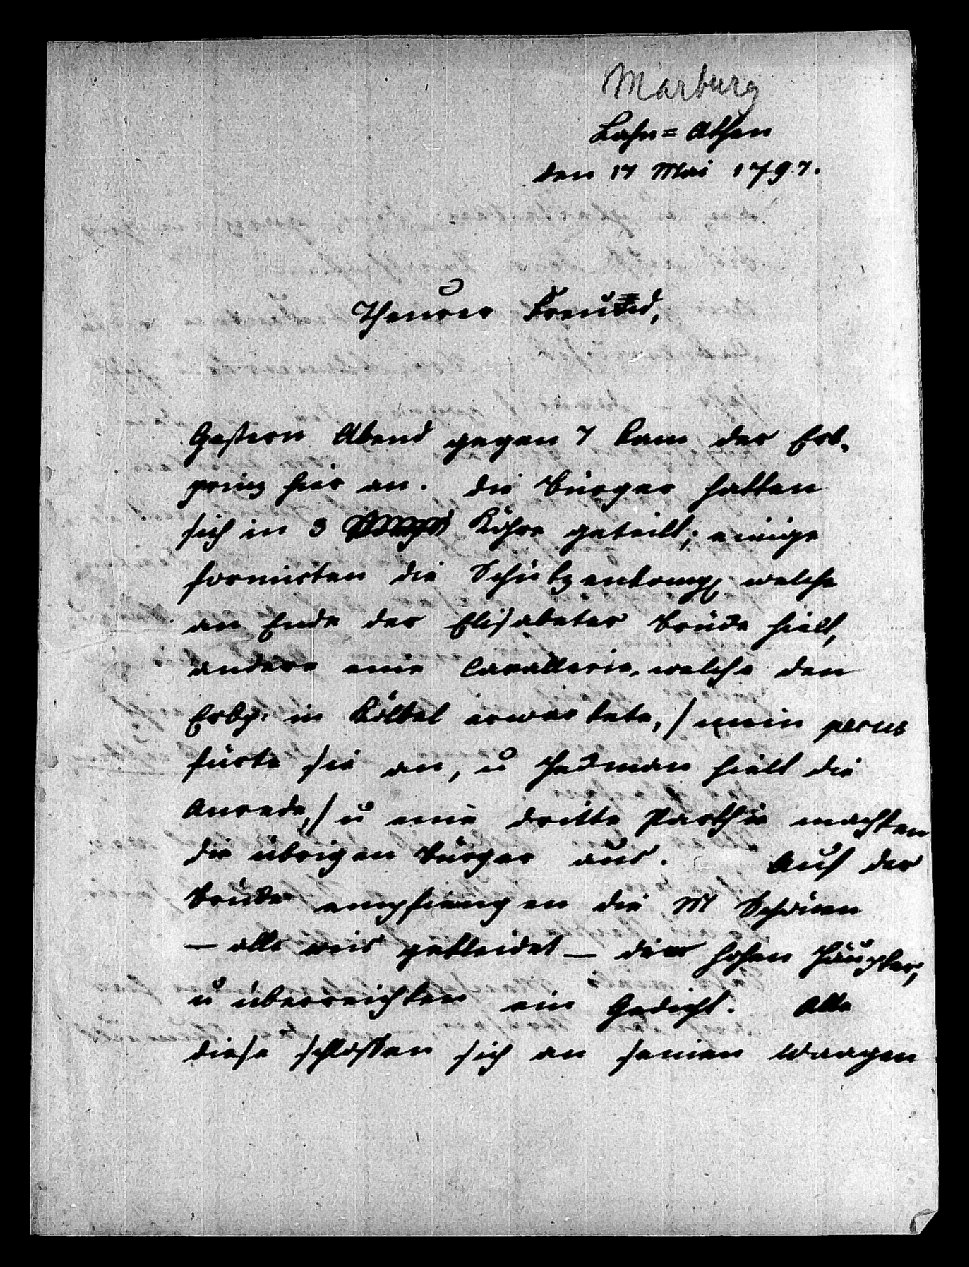 Marburg
Lahn=Athen
den 17 Mai 1797.
Theurer Freund,
Gestern Abend gegen 7 kam der Erb-
prinz hier an. Die Bürger hatten
sich in 3 Köhre geteilt; einige
formirten die Schützenkomp, welche
an Ende der Elisabeter Brüke hielt,
andere eine Cavallerie, welche den
Erbp. in Kölbel erwartete, /mein
fürte sie an, u hielt die
Anrede,/ u eine dritte Parthie machten
die übrigen Bürger aus. Auf der
Brüke empfiengen die M Schönen
— alle weis gekleidet — die hohen Häupter,
u überreichten ein Gedicht. Alle
diese schlossen sich an seinen Waagen